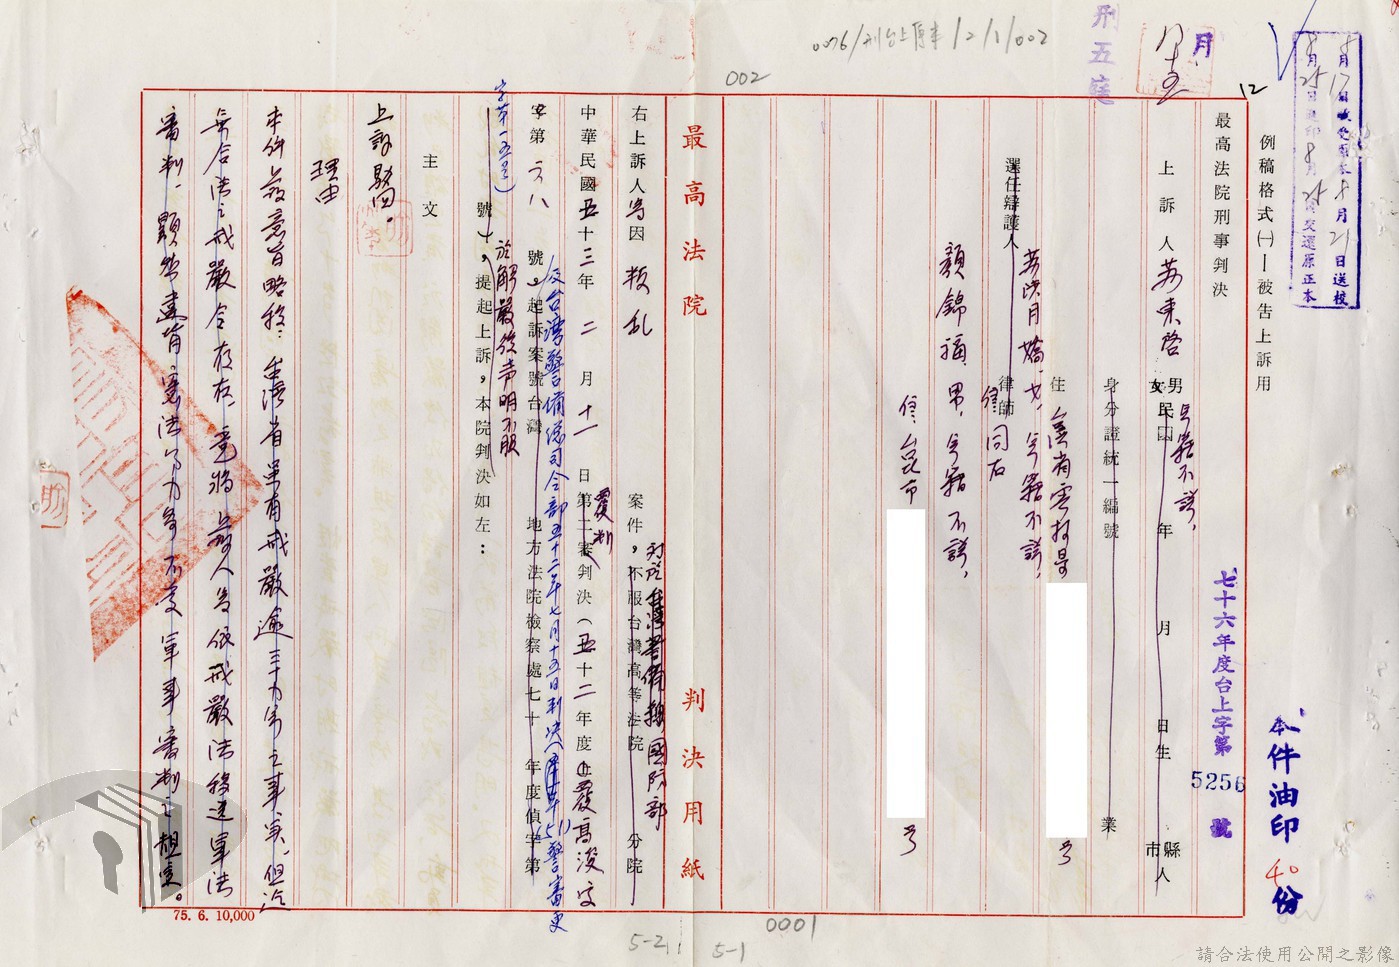 0076/刑台上原本/2/1/002
002
刑五庭
月
12
例稿格式㈠—被告上訴用
最高法院刑事判決
七十六年度台上字第 5256 號
本件油印 40 份
上訴人 蘇東啓 男女 民國 年 月 日生 市縣人
年籍不詳,
身分證統一編號 業
住 台灣省雲林縣 號
選任辯護人 律師
蘇洪月嬌,女,年籍不詳,
住同右
顏錦福,男,年籍不詳,
住、台北市 號
最高法院 判決用紙
右上訴人為因叛亂案件,不服台灣高等法院 分院
國防部
中華民國五十三年二月十一日第二審判決(五十二年度上覆高浚字
覆判
字第 六八 號,起訴案號台灣 地方法院檢察處七十 年度偵字第
及台灣警備總司令部五十二年七月十五日判決(51)警審更
字第一五號)
號),提起上訴,本院判決如左:
於解嚴後聲明不服
主文
上訴駁回。
理由
本件上訴意旨略稱:台灣省果有戒嚴逾三十八年之事實,但迄
無合法之戒嚴令存在,竟將上訴人等依戒嚴法移送軍法
審判,顯然違背憲法第九條不受軍事審判之規定。
75. 6. 10,000
0001
5-2
5-1
請合法使用公開之影像